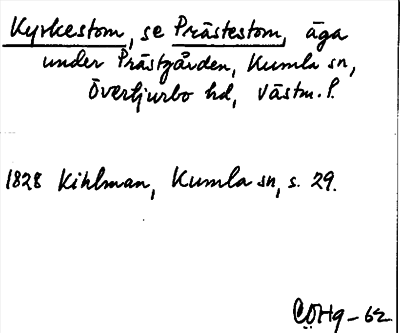 Kyrkestom, se Prästestom, äga
under Prästgården, Kumla sn,
Övertjurbo hd, Västm. l.
1828 Kihlman, Kumla sn, s. 29.
COHg-62